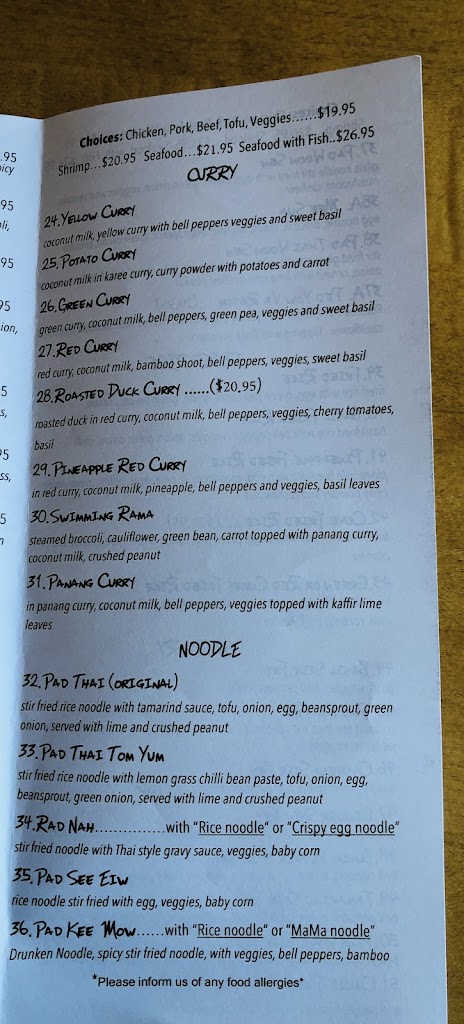 Choices: Chicken, Pork, Beef, Tofu, Veggies......$19.95
Shrimp...$20.95 Seafood...$21.95 Seafood with Fish..$26.95
CURRY
24. YELLOW CURRY
coconut milk, yellow curry with bell peppers veggies and sweet basil
25. POTATO CURRY
coconut milk in karee curry, curry powder with potatoes and carrot
26. GREEN CURRY
green curry, coconut milk, bell peppers, green pea, veggies and sweet basil
27. RED CURRY
red curry, coconut milk, bamboo shoot, bell peppers, veggies, sweet basil
28. ROASTED DUCK CURRY ......($20.95)
roasted duck in red curry, coconut milk, bell peppers, veggies, cherry tomatoes,
basil
29. PINEAPPLE RED CURRY
in red curry, coconut milk, pineapple, bell peppers and veggies, basil leaves
30. SWIMMING RAMA
steamed broccoli, cauliflower, green bean, carrot topped with panang curry,
coconut milk, crushed peanut
31. PANANG CURRY
in panang curry, coconut milk, bell peppers, veggies topped with kaffir lime
leaves
NOODLE
32. PAD THAI (ORIGINAL)
stir fried rice noodle with tamarind sauce, tofu, onion, egg, beansprout, green
onion, served with lime and crushed peanut
33. PAD THAI TOM YUM
stir fried rice noodle with lemon grass chilli bean paste, tofu, onion, egg,
beansprout, green onion, served with lime and crushed peanut
34. RAD NAH...............with "Rice noodle" or "Crispy egg noodle"
stir fried noodle with Thai style gravy sauce, veggies, baby corn
35. PAD SEE EIW
rice noodle stir fried with egg, veggies, baby corn
36. PAD KEE MOW......with "Rice noodle" or "MaMa noodle"
Drunken Noodle, spicy stir fried noodle, with veggies, bell peppers, bamboo
*Please inform us of any food allergies*